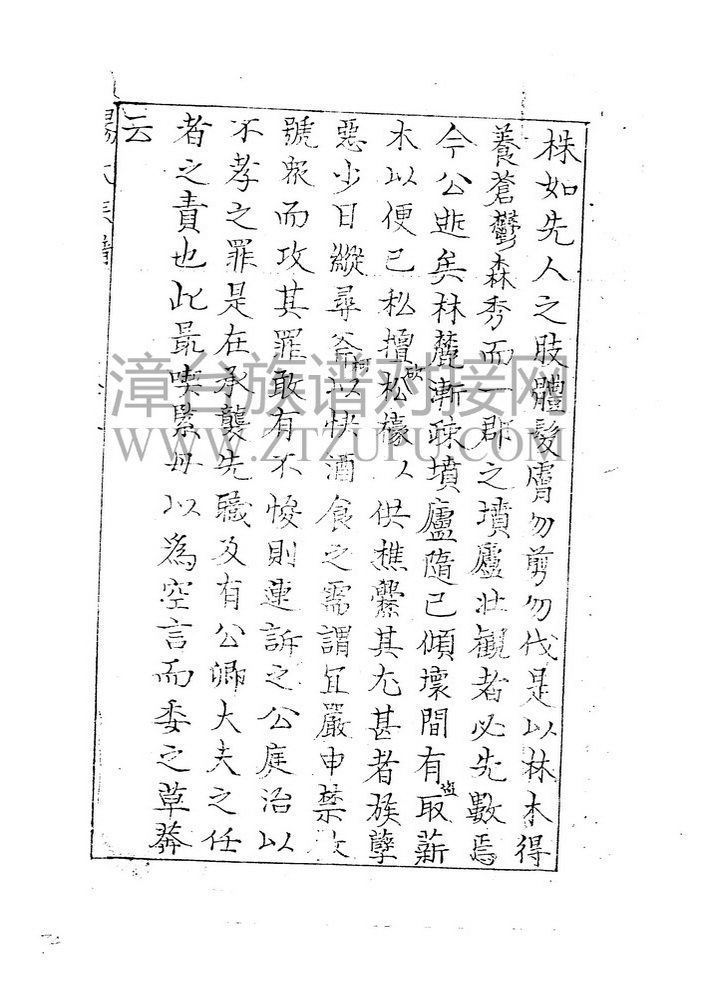 株如先人之肢體髮膚勿剪勿伐是以林木得
養蒼鬱森秀而一郡之墳廬壯觀者必先數焉
今公逝矣林麓漸疎墳廬隨已傾壞間有盜取薪
木以便己私擅砍松檺以供樵爨其尤甚者族孽
惡少日縱尋斧柯以快酒食之需謂宜嚴申禁
號眾而攻其罪敢有不悛則連訴之公庭治以
不孝之罪是在承襲先職及有公卿大夫之任
者之責也此最喫緊毋以為空言而委之草莽
云
漳台族谱对接网
WWW.ZTZUPU.COM